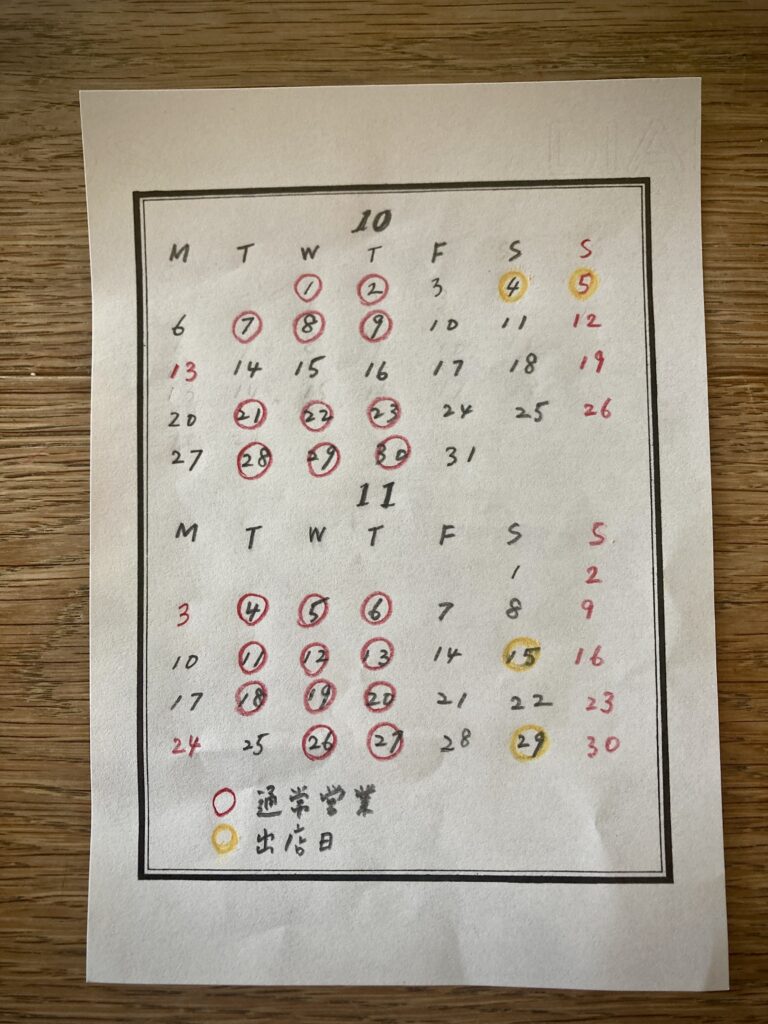 10
M T W T F S S
1 2 3 4 5
6 7 8 9 10 11 12
13 14 15 16 17 18 19
20 21 22 23 24 25 26
27 28 29 30 31
11
M T W T F S S
1 2
3 4 5 6 7 8 9
10 11 12 13 14 15 16
17 18 19 20 21 22 23
24 25 26 27 28 29 30
通常営業
出店日